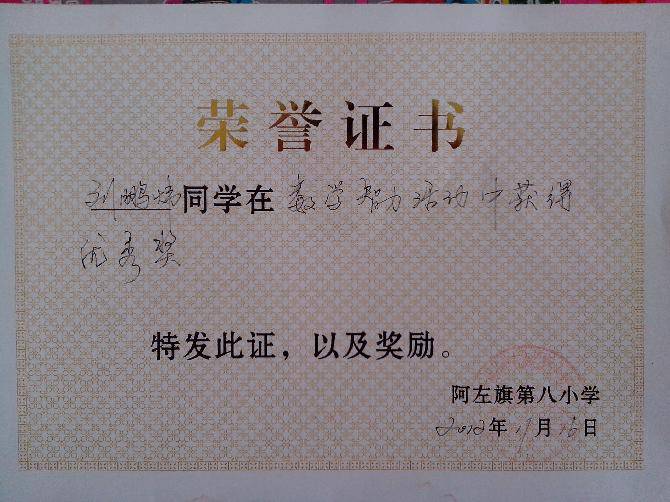 荣誉证书
刘鹏 同学在 数学智力活动中获得
优秀奖
特发此证，以及奖励。
阿左旗第八小学
2012年11月16日